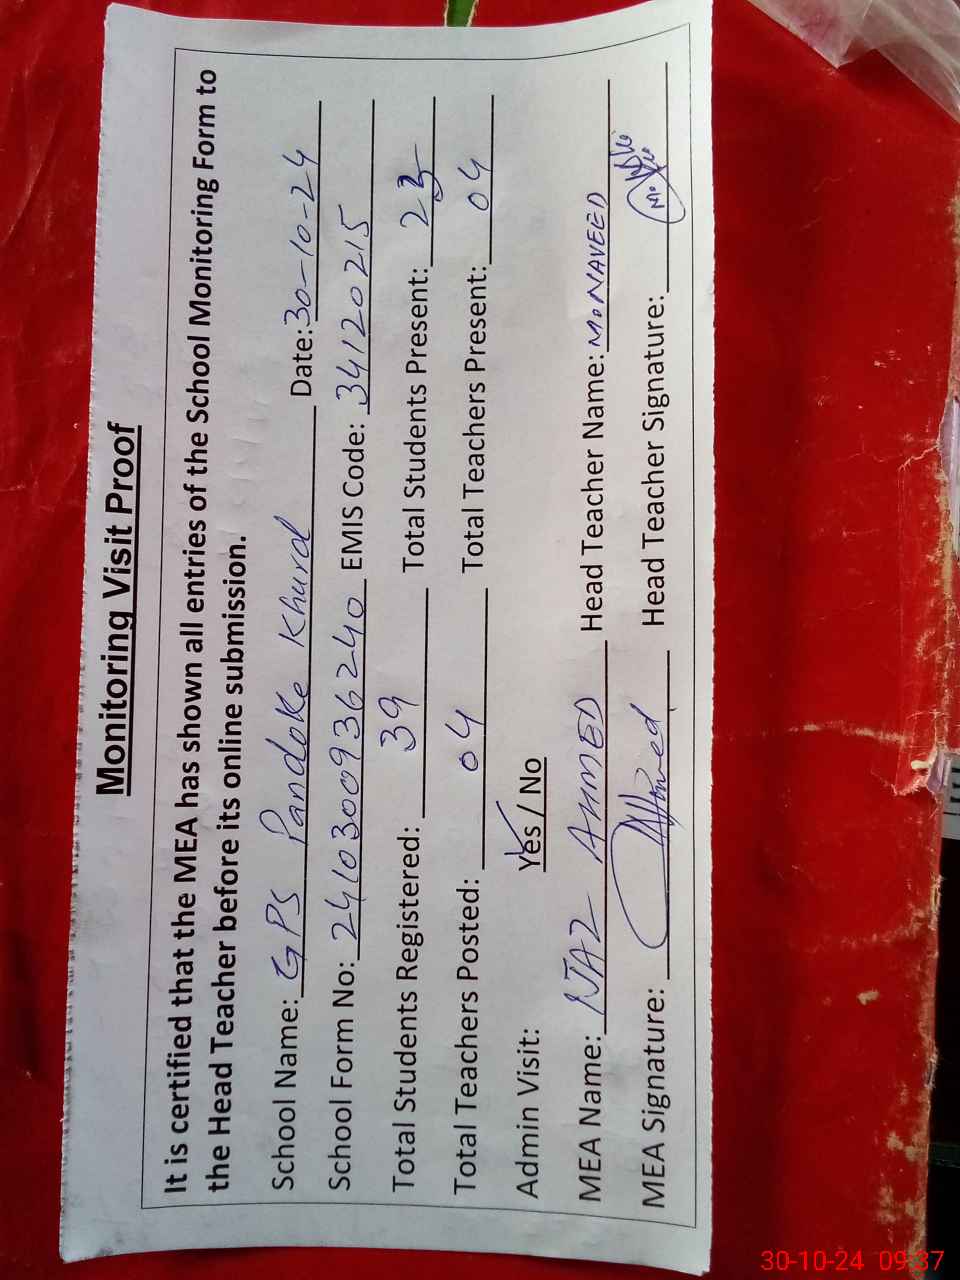 Monitoring Visit Proof
It is certified that the MEA has shown all entries of the School Monitoring Form to
the Head Teacher before its online submission.
School Name: GPS Pandoke Khurd Date: 30-10-24
School Form No: 2410300936240 EMIS Code: 34120215
Total Students Registered: 39 Total Students Present: 23
Total Teachers Posted: 04 Total Teachers Present: 04
Admin Visit: Yes / No
MEA Name: NIAZ AHMED Head Teacher Name: M. NAVEED
MEA Signature: Head Teacher Signature:
30-10-24 09:37